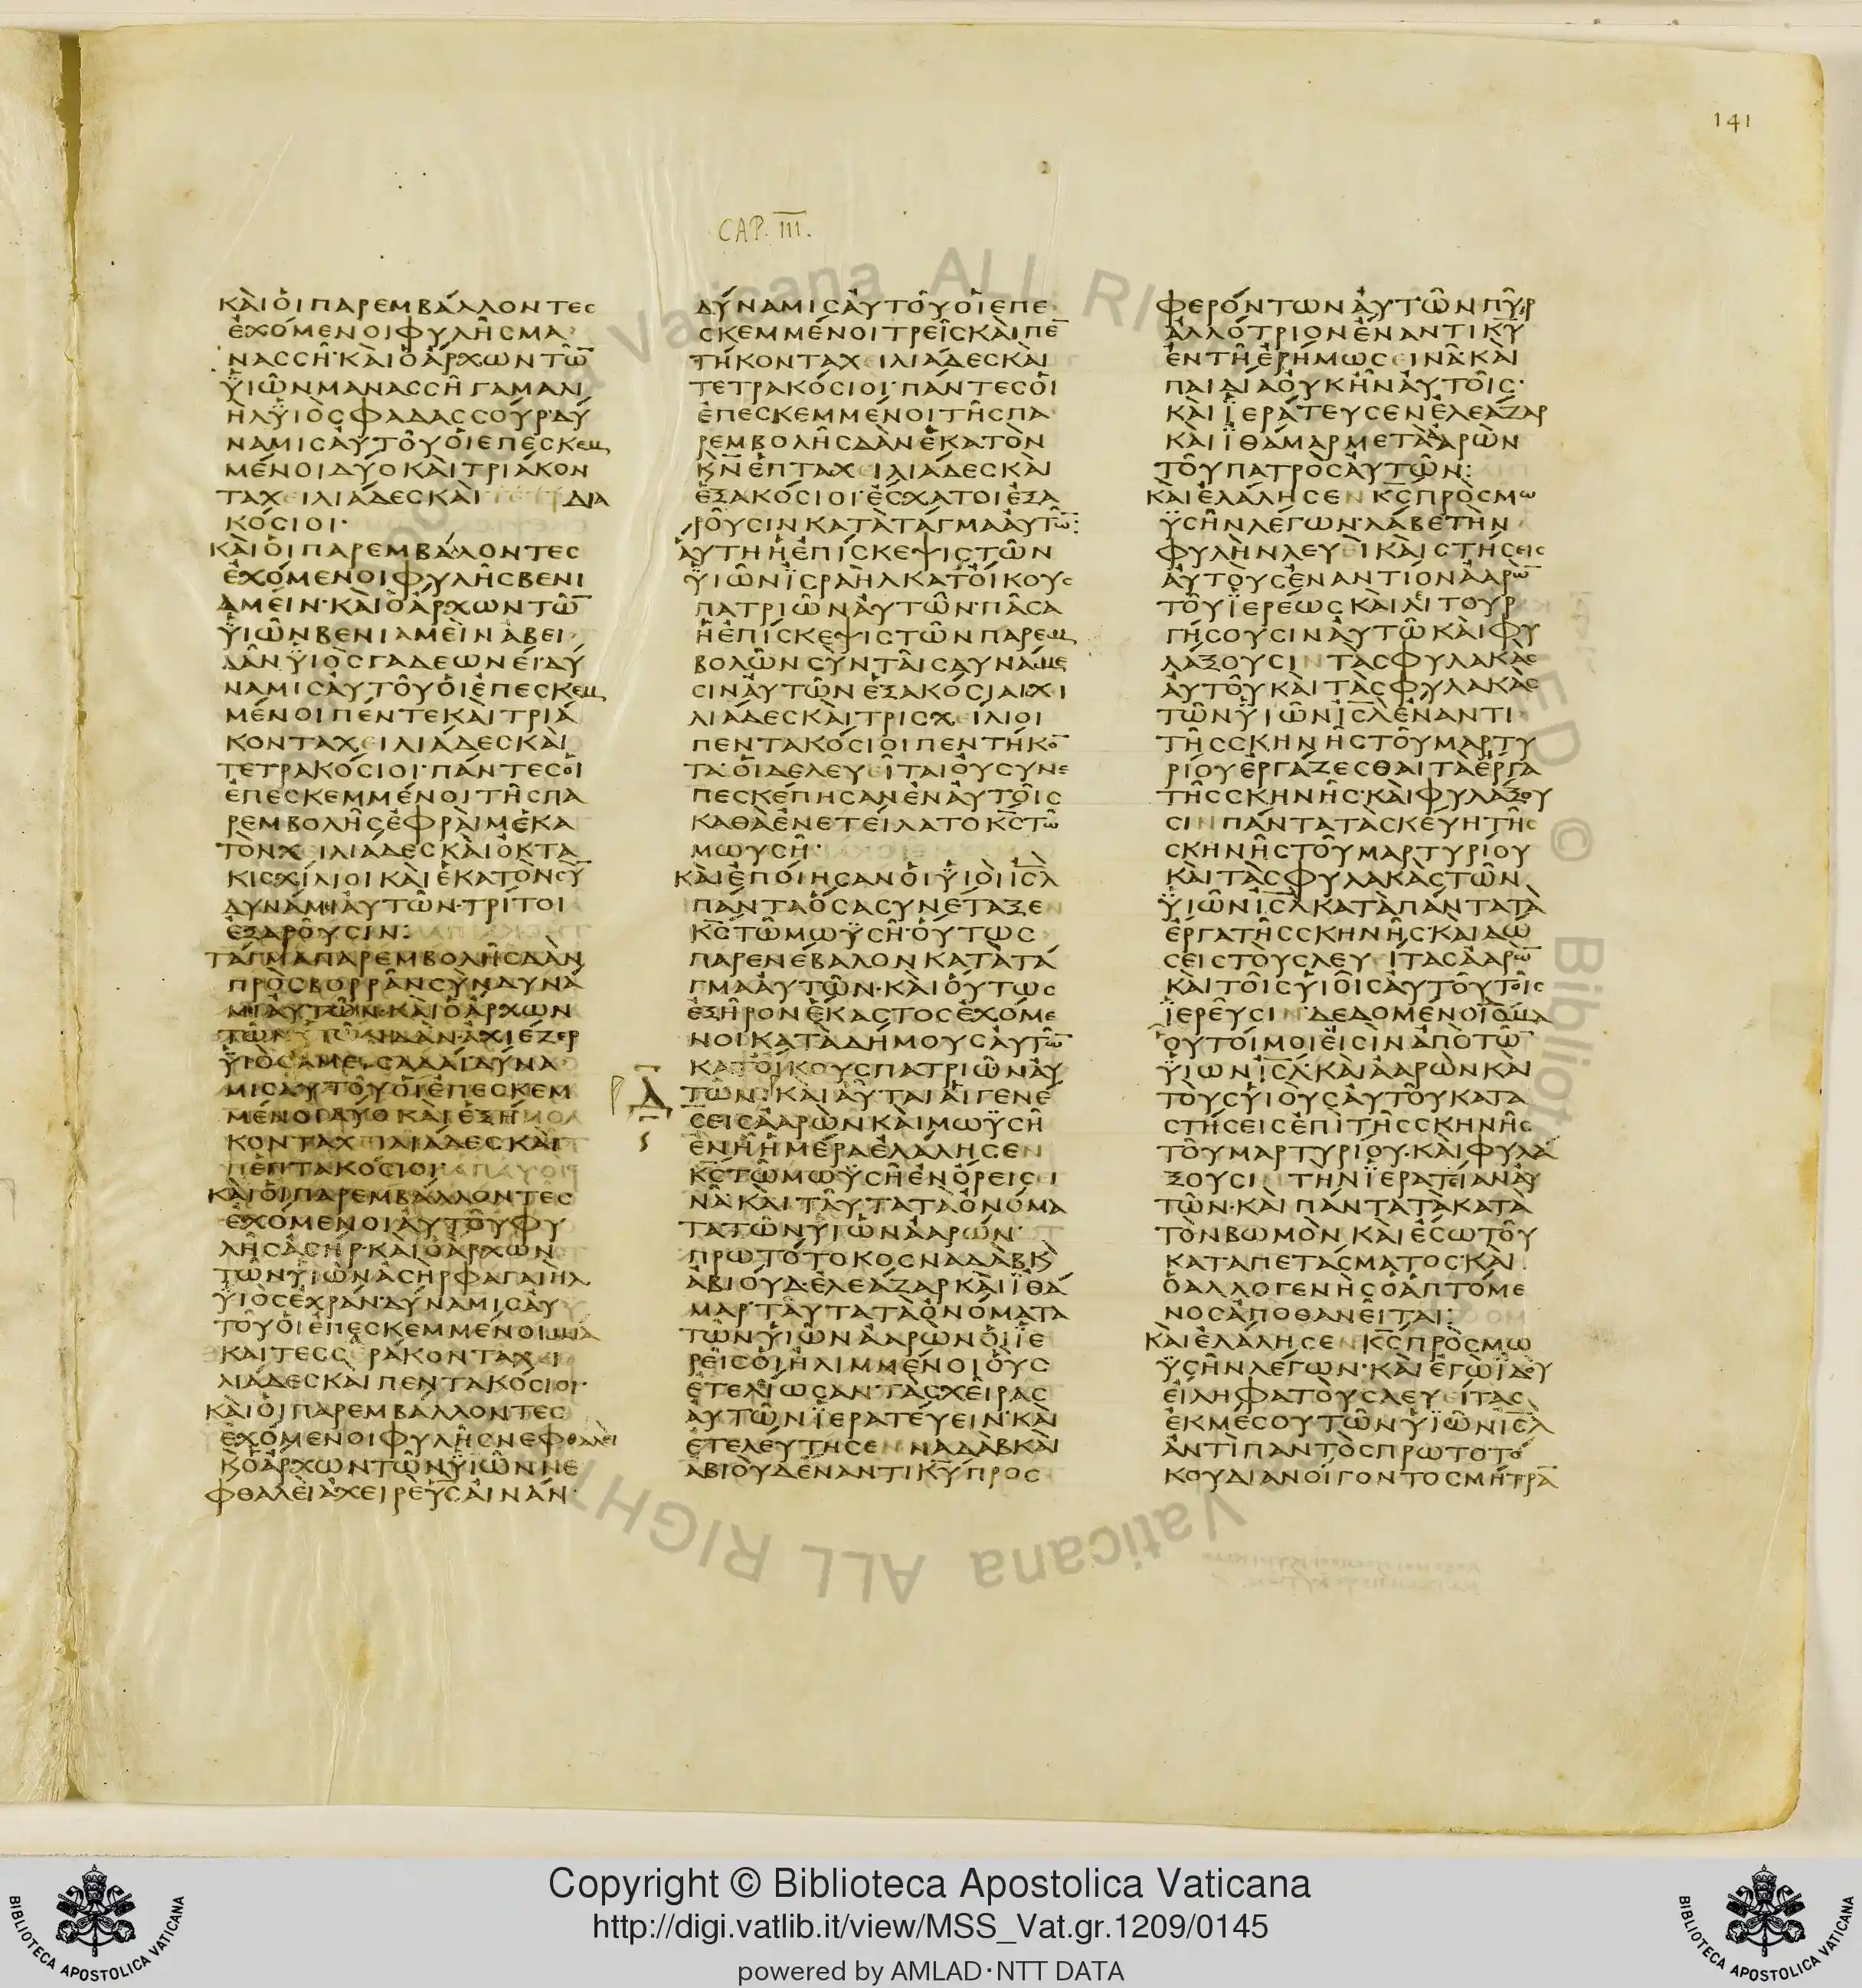 141
CAP. III.
ΚΑΙΟΙΠΑΡΕΜΒΑΛΛΟΝΤΕΣ
ΕΧΟΜΕΝΟΙΦΥΛΗΣΜΑ
ΝΑΣΣΗ·ΚΑΙΟΑΡΧΩΝΤΩ̅
ΫΙΩΝΜΑΝΑΣΣΗΓΑΜΑΛΙ
ΗΛΫΙΟΣΦΑΔΑΣΣΟΥΡ·ΔΥ
ΝΑΜΙΣΑΥΤΟΥΟΙΕΠΕΣΚΕΜ
ΜΕΝΟΙΔΥΟΚΑΙΤΡΙΑΚΟΝ
ΤΑΧΕΙΛΙΑΔΕΣΚΑΙ ΔΙΑ
ΚΟΣΙΟΙ·
ΚΑΙΟΙΠΑΡΕΜΒΑΛΟΝΤΕΣ
ΕΧΟΜΕΝΟΙΦΥΛΗΣΒΕΝΙ
ΑΜΕΙΝ·ΚΑΙΟΑΡΧΩΝΤΩ̅
ΫΙΩΝΒΕΝΙΑΜΕΙΝΑΒΕΙ
ΔΑΝΫΙΟΣΓΑΔΕΩΝΕΙ·ΔΥ
ΝΑΜΙΣΑΥΤΟΥΟΙΕΠΕΣΚΕΜ
ΜΕΝΟΙΠΕΝΤΕΚΑΙΤΡΙΑ
ΚΟΝΤΑΧΕΙΛΙΑΔΕΣΚΑΙ
ΤΕΤΡΑΚΟΣΙΟΙ·ΠΑΝΤΕΣΟΙ
ΕΠΕΣΚΕΜΜΕΝΟΙΤΗΣΠΑ
ΡΕΜΒΟΛΗΣΕΦΡΑΙΜΕΚΑ
ΤΟΝΧΕΙΛΙΑΔΕΣΚΑΙΟΚΤΑ
ΚΙΣΧΙΛΙΟΙΚΑΙΕΚΑΤΟΝΣΥ̅
ΔΥΝΑΜΙΑΥΤΩΝ·ΤΡΙΤΟΙ
ΕΞΑΡΟΥΣΙΝ:
ΤΑΓΜΑΠΑΡΕΜΒΟΛΗΣΔΑΝ
ΠΡΟΣΒΟΡΡΑΝΣΥΝΔΥΝΑ
ΜΙΑΥΤΩΝ·ΚΑΙΟΑΡΧΩΝ
ΤΩΝΥΙΩΝΔΑΝ·ΑΧΙΕΖΕΡ
ΫΙΟΣΑΜΕΙΣΑΔΑΙ·ΔΥΝΑ
ΜΙΣΑΥΤΟΥΟΙΕΠΕΣΚΕΜ
ΜΕΝΟΙΔΥΟΚΑΙΕΞΗ
ΚΟΝΤΑΧΕΙΛΙΑΔΕΣΚΑΙ
ΕΠΤΑΚΟΣΙΟΙ
ΚΑΙΟΙΠΑΡΕΜΒΑΛΛΟΝΤΕΣ
ΕΧΟΜΕΝΟΙΑΥΤΟΥΦΥ
ΛΗΣΑΣΗΡ·ΚΑΙΟΑΡΧΩΝ
ΤΩΝΥΙΩΝΑΣΗΡΦΑΓΑΙΗΛ
ΫΙΟΣΕΧΡΑΝ·ΔΥΝΑΜΙΣΑΥ
ΤΟΥΟΙΕΠΕΣΚΕΜΜΕΝΟΙΜΙΑ
ΚΑΙΤΕΣΣΕΡΑΚΟΝΤΑΧΕΙ
ΛΙΑΔΕΣΚΑΙΠΕΝΤΑΚΟΣΙΟΙ·
ΚΑΙΟΙΠΑΡΕΜΒΑΛΛΟΝΤΕΣ
ΕΧΟΜΕΝΟΙΦΥΛΗΣΝΕΦΘΑΛΕΙ
ΚϏΟΑΡΧΩΝΤΩΝΫΙΩΝΝΕ
ΦΘΑΛΕΙΑΧΕΙΡΕΥΣΑΙΝΑΝ·
ΔΥΝΑΜΙΣΑΥΤΟΥΟΙΕΠΕ
ΣΚΕΜΜΕΝΟΙΤΡΕΙΣΚΑΙΠΕ̅
ΤΗΚΟΝΤΑΧΕΙΛΙΑΔΕΣΚΑΙ
ΤΕΤΡΑΚΟΣΙΟΙ·ΠΑΝΤΕΣΟΙ
ΕΠΕΣΚΕΜΜΕΝΟΙΤΗΣΠΑ
ΡΕΜΒΟΛΗΣΔΑΝΕΚΑΤΟΝ
Κ̅Ν̅ΕΠΤΑΧΕΙΛΙΑΔΕΣΚΑΙ
ΕΞΑΚΟΣΙΟΙ·ΕΣΧΑΤΟΙΕΞΑ
ΡΟΥΣΙΝΚΑΤΑΤΑΓΜΑΑΥΤΩ̅:
ΑΥΤΗΗΕΠΙΣΚΕΨΙΣΤΩΝ
ΫΙΩΝΪΣΡΑΗΛΚΑΤΟΙΚΟΥΣ
ΠΑΤΡΙΩΝΑΥΤΩΝ·ΠΑΣΑ
ΗΕΠΙΣΚΕΨΙΣΤΩΝΠΑΡΕΜ
ΒΟΛΩΝΣΥΝΤΑΙΣΔΥΝΑΜΕ
ΣΙΝΑΥΤΩΝΕΞΑΚΟΣΙΑΙΧΙ
ΛΙΑΔΕΣΚΑΙΤΡΙΣΧΕΙΛΙΟΙ
ΠΕΝΤΑΚΟΣΙΟΙΠΕΝΤΗΚΟ̅
ΤΑ·ΟΙΔΕΛΕΥΕΙΤΑΙΟΥΣΥΝΕ
ΠΕΣΚΕΠΗΣΑΝΕΝΑΥΤΟΙΣ
ΚΑΘΑΕΝΕΤΕΙΛΑΤΟΚ̅Σ̅ΤΩ
ΜΩΥΣΗ·
ΚΑΙΕΠΟΙΗΣΑΝΟΙΫΙΟΙΙ̅Σ̅Λ̅
ΠΑΝΤΑΟΣΑΣΥΝΕΤΑΞΕΝ
Κ̅Σ̅ΤΩΜΩΫΣΗ·ΟΥΤΩΣ
ΠΑΡΕΝΕΒΑΛΟΝΚΑΤΑΤΑ
ΓΜΑΑΥΤΩΝ·ΚΑΙΟΥΤΩΣ
ΕΞΗΡΟΝΕΚΑΣΤΟΣΕΧΟΜΕ
ΝΟΙΚΑΤΑΔΗΜΟΥΣΑΥΤΩ̅
ΚΑΤΟΙΚΟΥΣΠΑΤΡΙΩΝΑΥ
ΤΩΝ:ΚΑΙΑΥΤΑΙΑΙΓΕΝΕ
ΣΕΙΣΑΑΡΩΝΚΑΙΜΩΫΣΗ
ΕΝΗΗΜΕΡΑΕΛΑΛΗΣΕΝ
Κ̅Σ̅ΤΩΜΩΫΣΗΕΝΟΡΕΙΣΙ
ΝΑ·ΚΑΙΤΑΥΤΑΤΑΟΝΟΜΑ
ΤΑΤΩΝΥΙΩΝΑΑΡΩΝ·
ΠΡΩΤΟΤΟΚΟΣΝΑΔΑΒΚϏ
ΑΒΙΟΥΔ·ΕΛΕΑΖΑΡΚΑΙΪΘΑ
ΜΑΡ·ΤΑΥΤΑΤΑΟΝΟΜΑΤΑ
ΤΩΝΥΙΩΝΑΑΡΩΝΟΙΪΕ
ΡΕΙΣΟΙΗΛΙΜΜΕΝΟΙΟΥΣ
ΕΤΕΛΙΩΣΑΝ·ΤΑΣΧΕΙΡΑΣ
ΑΥΤΩΝΪΕΡΑΤΕΥΕΙΝ·ΚΑΙ
ΕΤΕΛΕΥΤΗΣΕΝΝΑΔΑΒΚΑΙ
ΑΒΙΟΥΔΕΝΑΝΤΙΚ̅Υ̅ΠΡΟΣ
ΦΕΡΟΝΤΩΝΑΥΤΩΝΠΥΡ
ΑΛΛΟΤΡΙΟΝΕΝΑΝΤΙΚ̅Υ̅
ΕΝΤΗΕΡΗΜΩΣΕΙΝΑ·ΚΑΙ
ΠΑΙΔΙΑΟΥΚΗΝΑΥΤΟΙΣ·
ΚΑΙΪΕΡΑΤΕΥΣΕΝΕΛΕΑΖΑΡ
ΚΑΙΪΘΑΜΑΡΜΕΤΑΑΑΡΩΝ
ΤΟΥΠΑΤΡΟΣΑΥΤΩΝ:
ΚΑΙΕΛΑΛΗΣΕΝΚ̅Σ̅ΠΡΟΣΜΩ
ΫΣΗΝΛΕΓΩΝ·ΛΑΒΕΤΗΝ
ΦΥΛΗΝΛΕΥΕΙΚΑΙΣΤΗΣΕΙΣ
ΑΥΤΟΥΣΕΝΑΝΤΙΟΝΑΑΡΩ̅
ΤΟΥΪΕΡΕΩΣΚΑΙΛΙΤΟΥΡ
ΓΗΣΟΥΣΙΝΑΥΤΩΚΑΙΦΥ
ΛΑΞΟΥΣΙΝΤΑΣΦΥΛΑΚΑΣ
ΑΥΤΟΥΚΑΙΤΑΣΦΥΛΑΚΑΣ
ΤΩΝΫΙΩΝΙ̅Σ̅Λ̅ΕΝΑΝΤΙ
ΤΗΣΣΚΗΝΗΣΤΟΥΜΑΡΤΥ
ΡΙΟΥΕΡΓΑΖΕΣΘΑΙΤΑΕΡΓΑ
ΤΗΣΣΚΗΝΗΣ·ΚΑΙΦΥΛΑΞΟΥ
ΣΙΝΠΑΝΤΑΤΑΣΚΕΥΗΤΗΣ
ΣΚΗΝΗΣΤΟΥΜΑΡΤΥΡΙΟΥ
ΚΑΙΤΑΣΦΥΛΑΚΑΣΤΩΝ
ΫΙΩΝΙ̅Σ̅Λ̅ΚΑΤΑΠΑΝΤΑΤΑ
ΕΡΓΑΤΗΣΣΚΗΝΗΣ·ΚΑΙΔΩ
ΣΕΙΣΤΟΥΣΛΕΥΕΙΤΑΣΑΑΡΩ̅
ΚΑΙΤΟΙΣΥΙΟΙΣΑΥΤΟΥΤΟΙΣ
ΪΕΡΕΥΣΙΝ·ΔΕΔΟΜΕΝΟΙΔΟΜΑ
ΟΥΤΟΙΜΟΙΕΙΣΙΝΑΠΟΤΩ̅
ΫΙΩΝΙ̅Σ̅Λ̅·ΚΑΙΑΑΡΩΝΚΑΙ
ΤΟΥΣΥΙΟΥΣΑΥΤΟΥΚΑΤΑ
ΣΤΗΣΕΙΣΕΠΙΤΗΣΣΚΗΝΗΣ
ΤΟΥΜΑΡΤΥΡΙΟΥ·ΚΑΙΦΥΛΑ
ΞΟΥΣΙΝΤΗΝΪΕΡΑΤΕΙΑΝΑΥ
ΤΩΝ·ΚΑΙΠΑΝΤΑΤΑΚΑΤΑ
ΤΟΝΒΩΜΟΝΚΑΙΕΣΩΤΟΥ
ΚΑΤΑΠΕΤΑΣΜΑΤΟΣ·ΚΑΙ
ΟΑΛΛΟΓΕΝΗΣΟΑΠΤΟΜΕ
ΝΟΣΑΠΟΘΑΝΕΙΤΑΙ:
ΚΑΙΕΛΑΛΗΣΕΝΚ̅Σ̅ΠΡΟΣΜΩ
ΫΣΗΝΛΕΓΩΝ·ΚΑΙΕΓΩΪΔΟΥ
ΕΙΛΗΦΑΤΟΥΣΛΕΥΕΙΤΑΣ
ΕΚΜΕΣΟΥΤΩΝΥΙΩΝΙ̅Σ̅Λ̅
ΑΝΤΙΠΑΝΤΟΣΠΡΩΤΟΤΟ
ΚΟΥΔΙΑΝΟΙΓΟΝΤΟΣΜΗΤΡΑ̅
Copyright © Biblioteca Apostolica Vaticana
http://digi.vatlib.it/view/MSS_Vat.gr.1209/0145
powered by AMLAD·NTT DATA
BIBLIOTECA APOSTOLICA VATICANA
BIBLIOTECA APOSTOLICA VATICANA